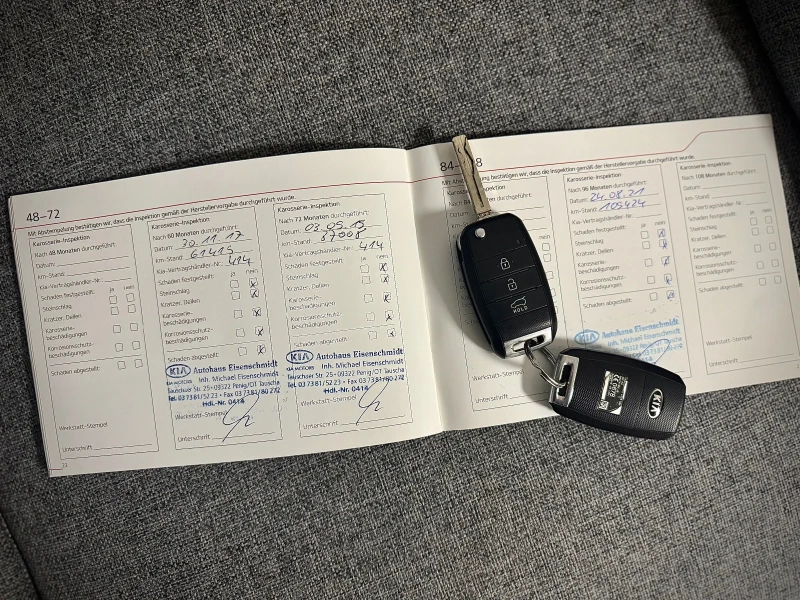 48–72
Mit Abstempelung bestätigen wir, dass die Inspektion gemäß der Herstellervorgabe durchgeführt wurde.
Karosserie-Inspektion
Nach 48 Monaten durchgeführt:
Datum:
km-Stand:
Kia-Vertragshändler-Nr.:
Schaden festgestellt: ja nein
Steinschlag
Kratzer, Dellen
Karosserie-
beschädigungen
Korrosionsschutz-
beschädigungen
Schaden abgestellt:
Werkstatt-Stempel
Unterschrift
Karosserie-Inspektion
Nach 60 Monaten durchgeführt:
Datum: 30.11.17
km-Stand: 61415
Kia-Vertragshändler-Nr.: 414
Schaden festgestellt: ja nein
Steinschlag
Kratzer, Dellen
Karosserie-
beschädigungen
Korrosionsschutz-
beschädigungen
Schaden abgestellt:
KIA Autohaus Eisenschmidt
KIA MOTORS Inh. Michael Eisenschmidt
Tauschaer Str. 25 • 09322 Penig/OT Tauscha
Tel. 03 73 81/52 23 • Fax 03 73 81/80 272
Hdl.-Nr. 0414
Werkstatt-Stempel
Unterschrift
Karosserie-Inspektion
Nach 72 Monaten durchgeführt:
Datum: 03.05.19
km-Stand:
Kia-Vertragshändler-Nr.: 414
Schaden festgestellt: ja nein
Steinschlag
Kratzer, Dellen
Karosserie-
beschädigungen
Korrosionsschutz-
beschädigungen
Schaden abgestellt:
KIA Autohaus Eisenschmidt
KIA MOTORS Inh. Michael Eisenschmidt
Tauschaer Str. 25 • 09322 Penig/OT Tauscha
Tel. 03 73 81/52 23 • Fax 03 73 81/80 272
Hdl.-Nr. 0414
Werkstatt-Stempel
Unterschrift
Mit Abstempelung bestätigen wir, dass die Inspektion gemäß der Herstellervorgabe durchgeführt wurde.
Karosserie-Inspektion
Werkstatt-Stempel
Unterschrift
Karosserie-Inspektion
Nach 96 Monaten durchgeführt:
Datum: 24.08.21
km-Stand: 105424
Kia-Vertragshändler-Nr.:
Schaden festgestellt: ja nein
Steinschlag
Kratzer, Dellen
Karosserie-
beschädigungen
Korrosionsschutz-
beschädigungen
Schaden abgestellt:
KIA Autohaus Eisenschmidt
Karosserie-Inspektion
Nach 108 Monaten durchgeführt:
Datum:
km-Stand:
Kia-Vertragshändler-Nr.:
Schaden festgestellt: ja nein
Steinschlag
Kratzer, Dellen
Karosserie-
beschädigungen
Korrosionsschutz-
beschädigungen
Schaden abgestellt:
Werkstatt-Stempel
HOLD
KIA